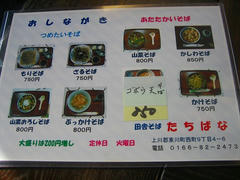 おしながき
つめたいそば
あたたかいそば
もりそば
750円
ざるそば
750円
山菜そば
800円
かしわそば
850円
山菜おろしそば
800円
ぶっかけそば
800円
ゴボウ天そば
田舎そば
かけそば
750円
たちばな
大盛りは200円増し
定休日 火曜日
上川郡東川町西町9丁目4-6
電話 0166-82-2473